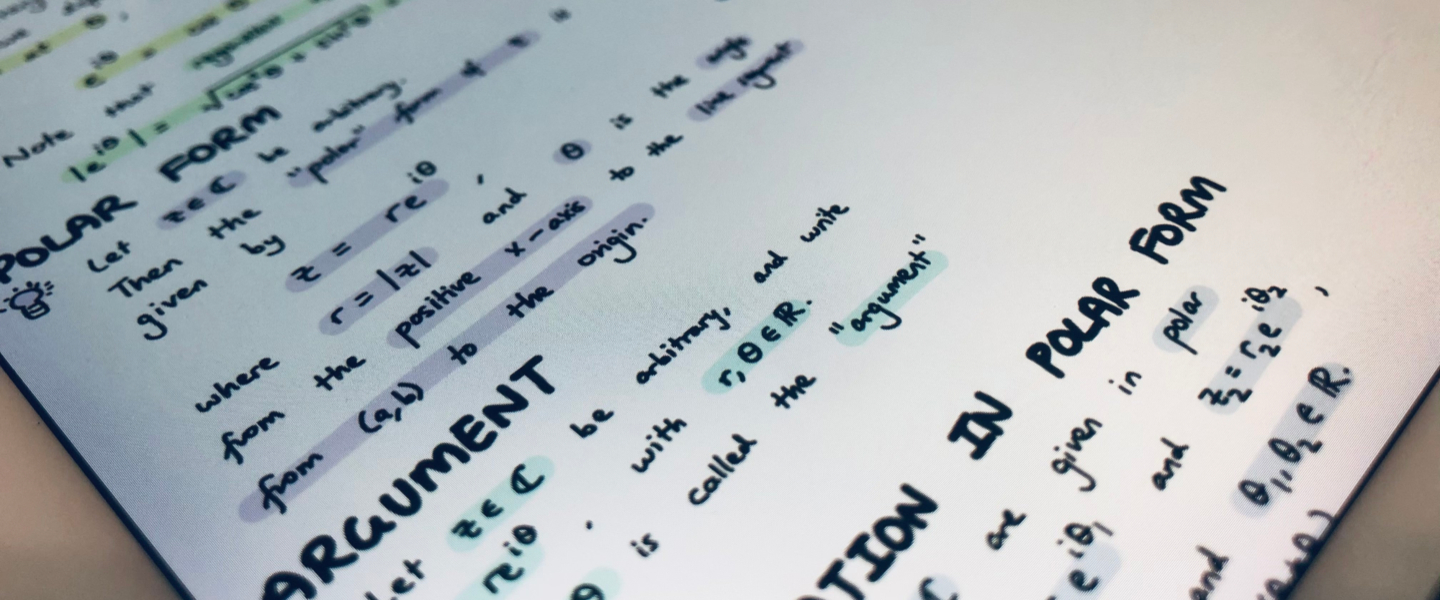 e^{iθ} =
Note that
|e^{iθ}| = √cos²θ + sin²θ
POLAR FORM
Let z ∈ ℂ be arbitrary.
Then the "polar" form of z is
given by
z = re^{iθ},
where r = |z| and θ is the angle
from the positive x-axis to the line segment
from (a,b) to the origin.
ARGUMENT
Let z ∈ ℂ be arbitrary, and write
re^{iθ}, with r, θ ∈ ℝ.
θ is called the "argument"
TION IN POLAR FORM
are given in polar
e^{iθ₁} and z₂ = r₂e^{iθ₂},
and θ₁, θ₂ ∈ ℝ.